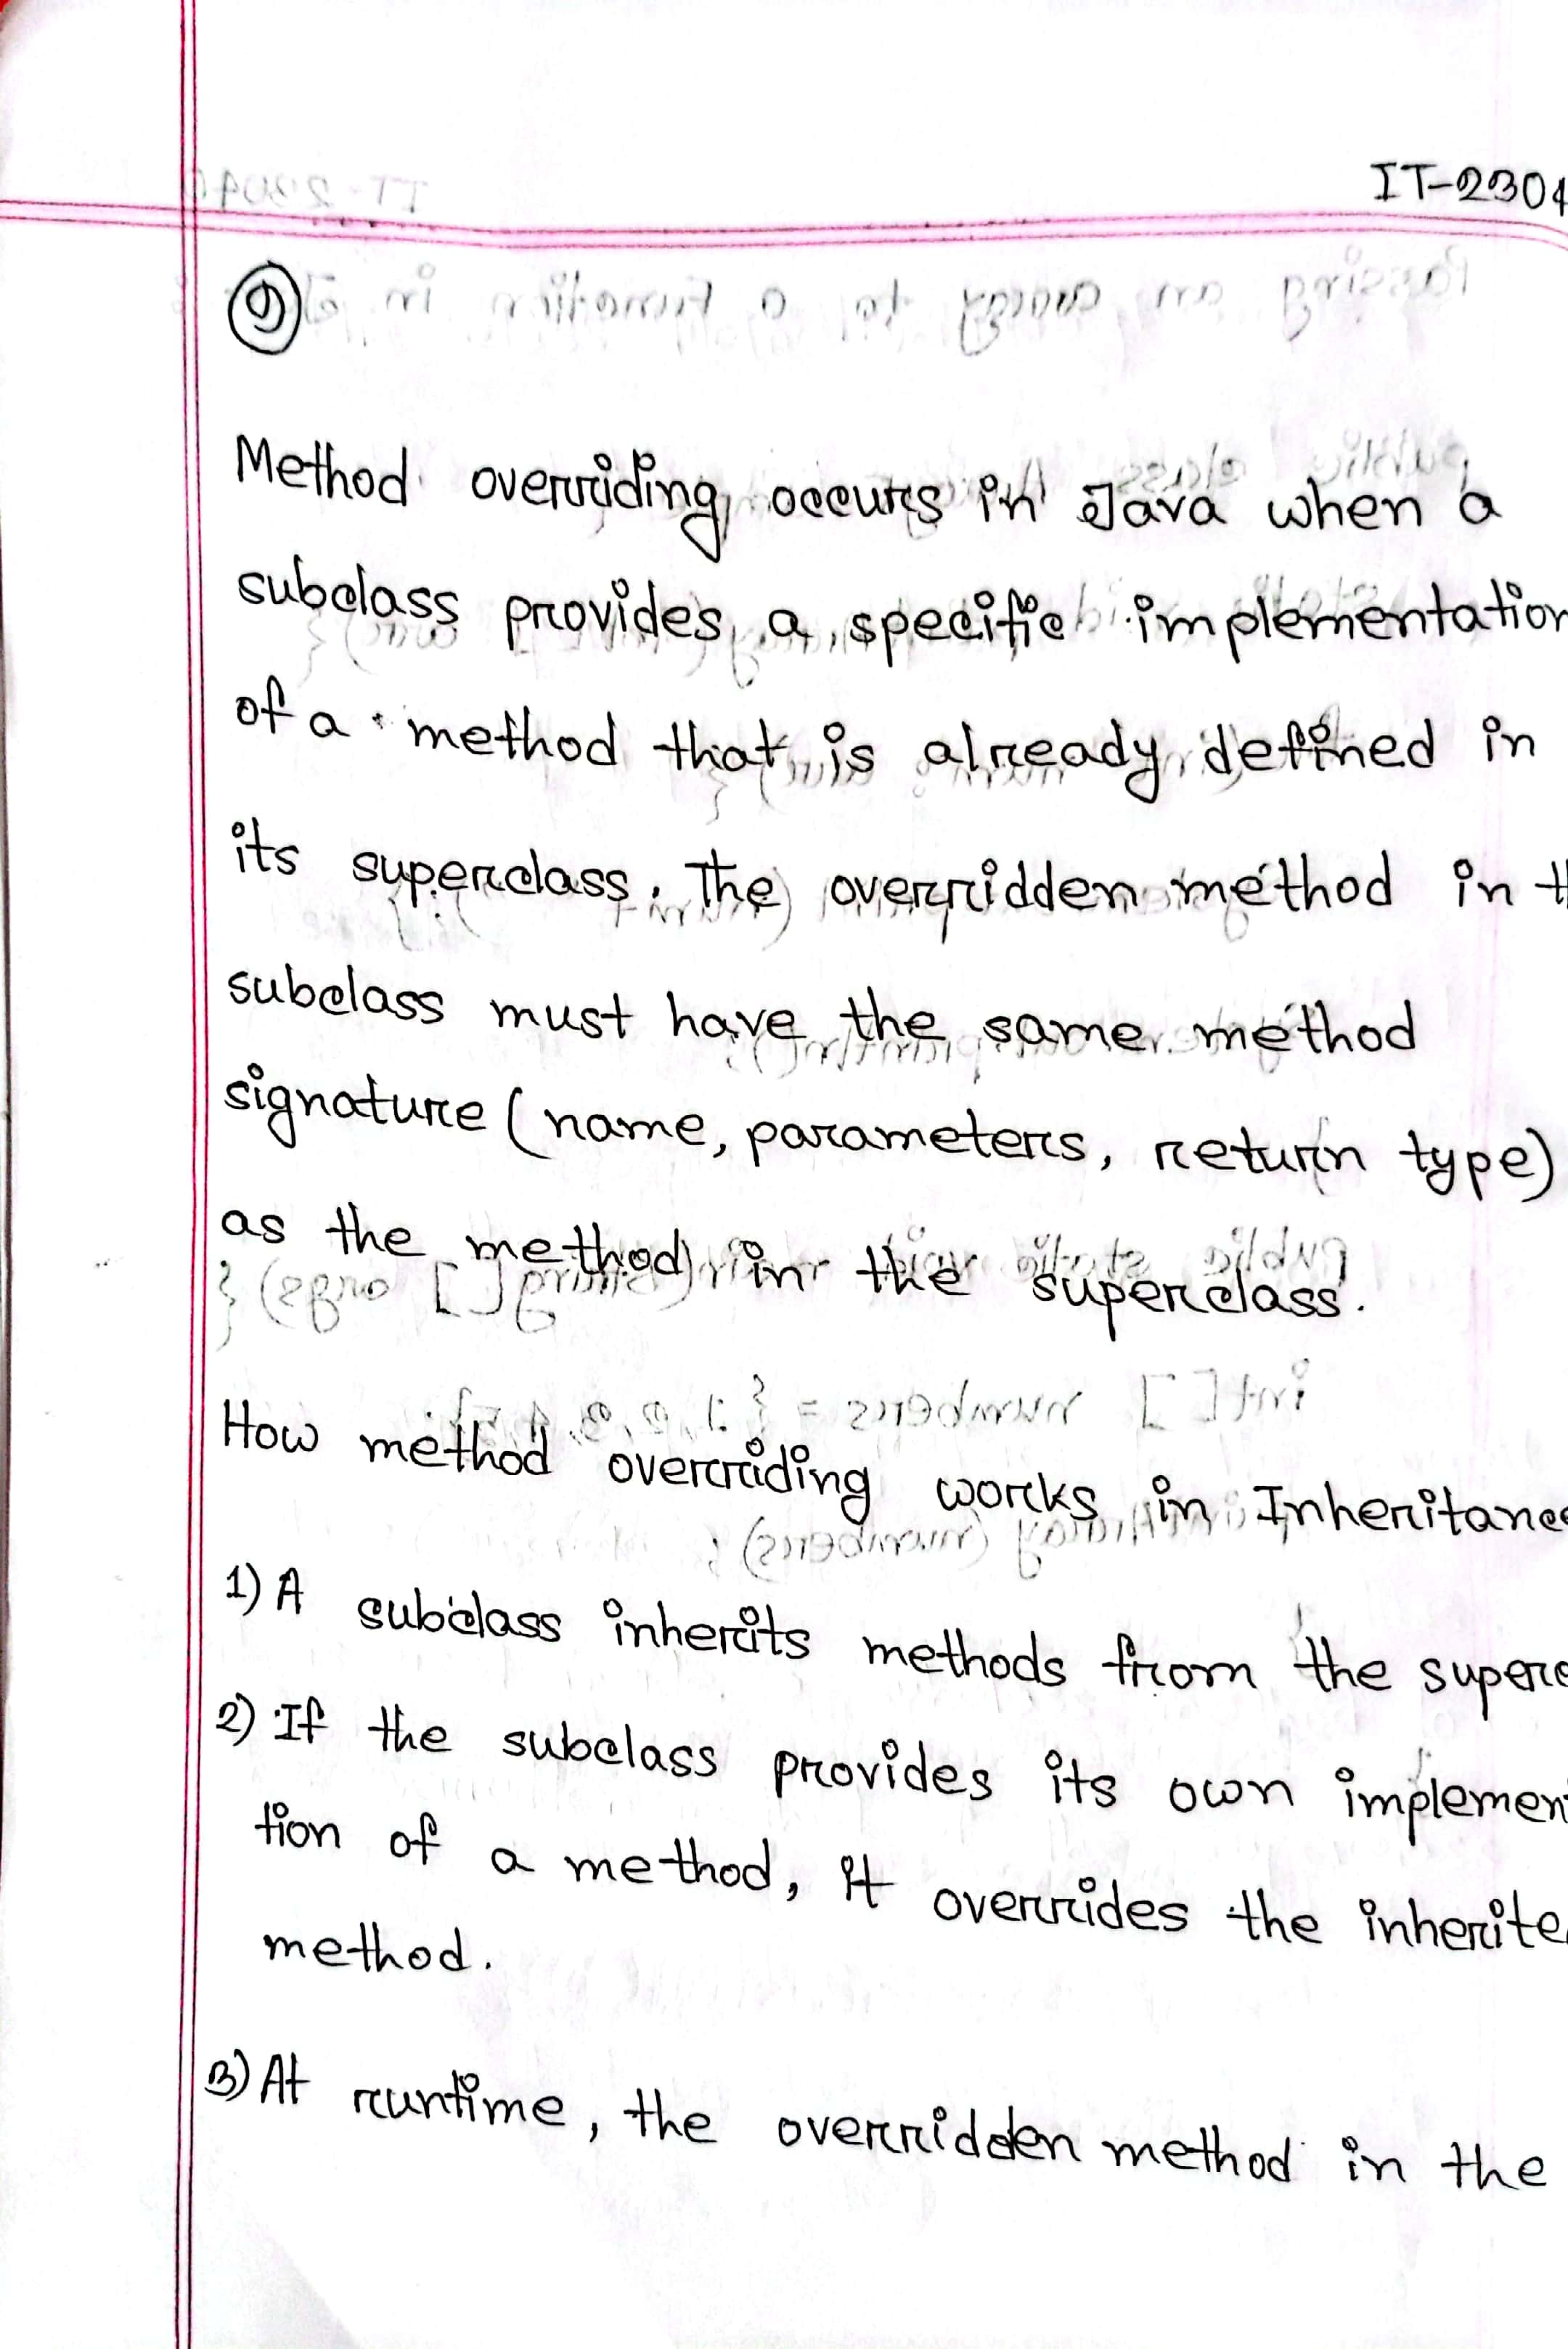 IT-2304
9
Method overriding occurs in Java when a
subclass provides a specific implementation
of a method that is already defined in
its superclass. The overridden method in th
subclass must have the same method
signature (name, parameters, return type)
as the method in the superclass.
How method overriding works in Inheritance
1) A subclass inherits methods from the superc
2) If the subclass provides its own implemen
tion of a method, it overrides the inherite
method.
3) At runtime, the overridden method in the